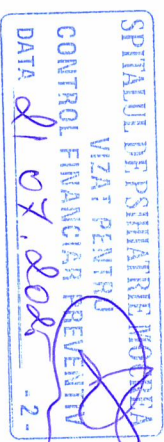 SPITALUL DE PSIHIATRIE MOCREA
VIZAT PENTRU
CONTROL FINANCIAR PREVENTIV
DATA 21 07. - 2 -